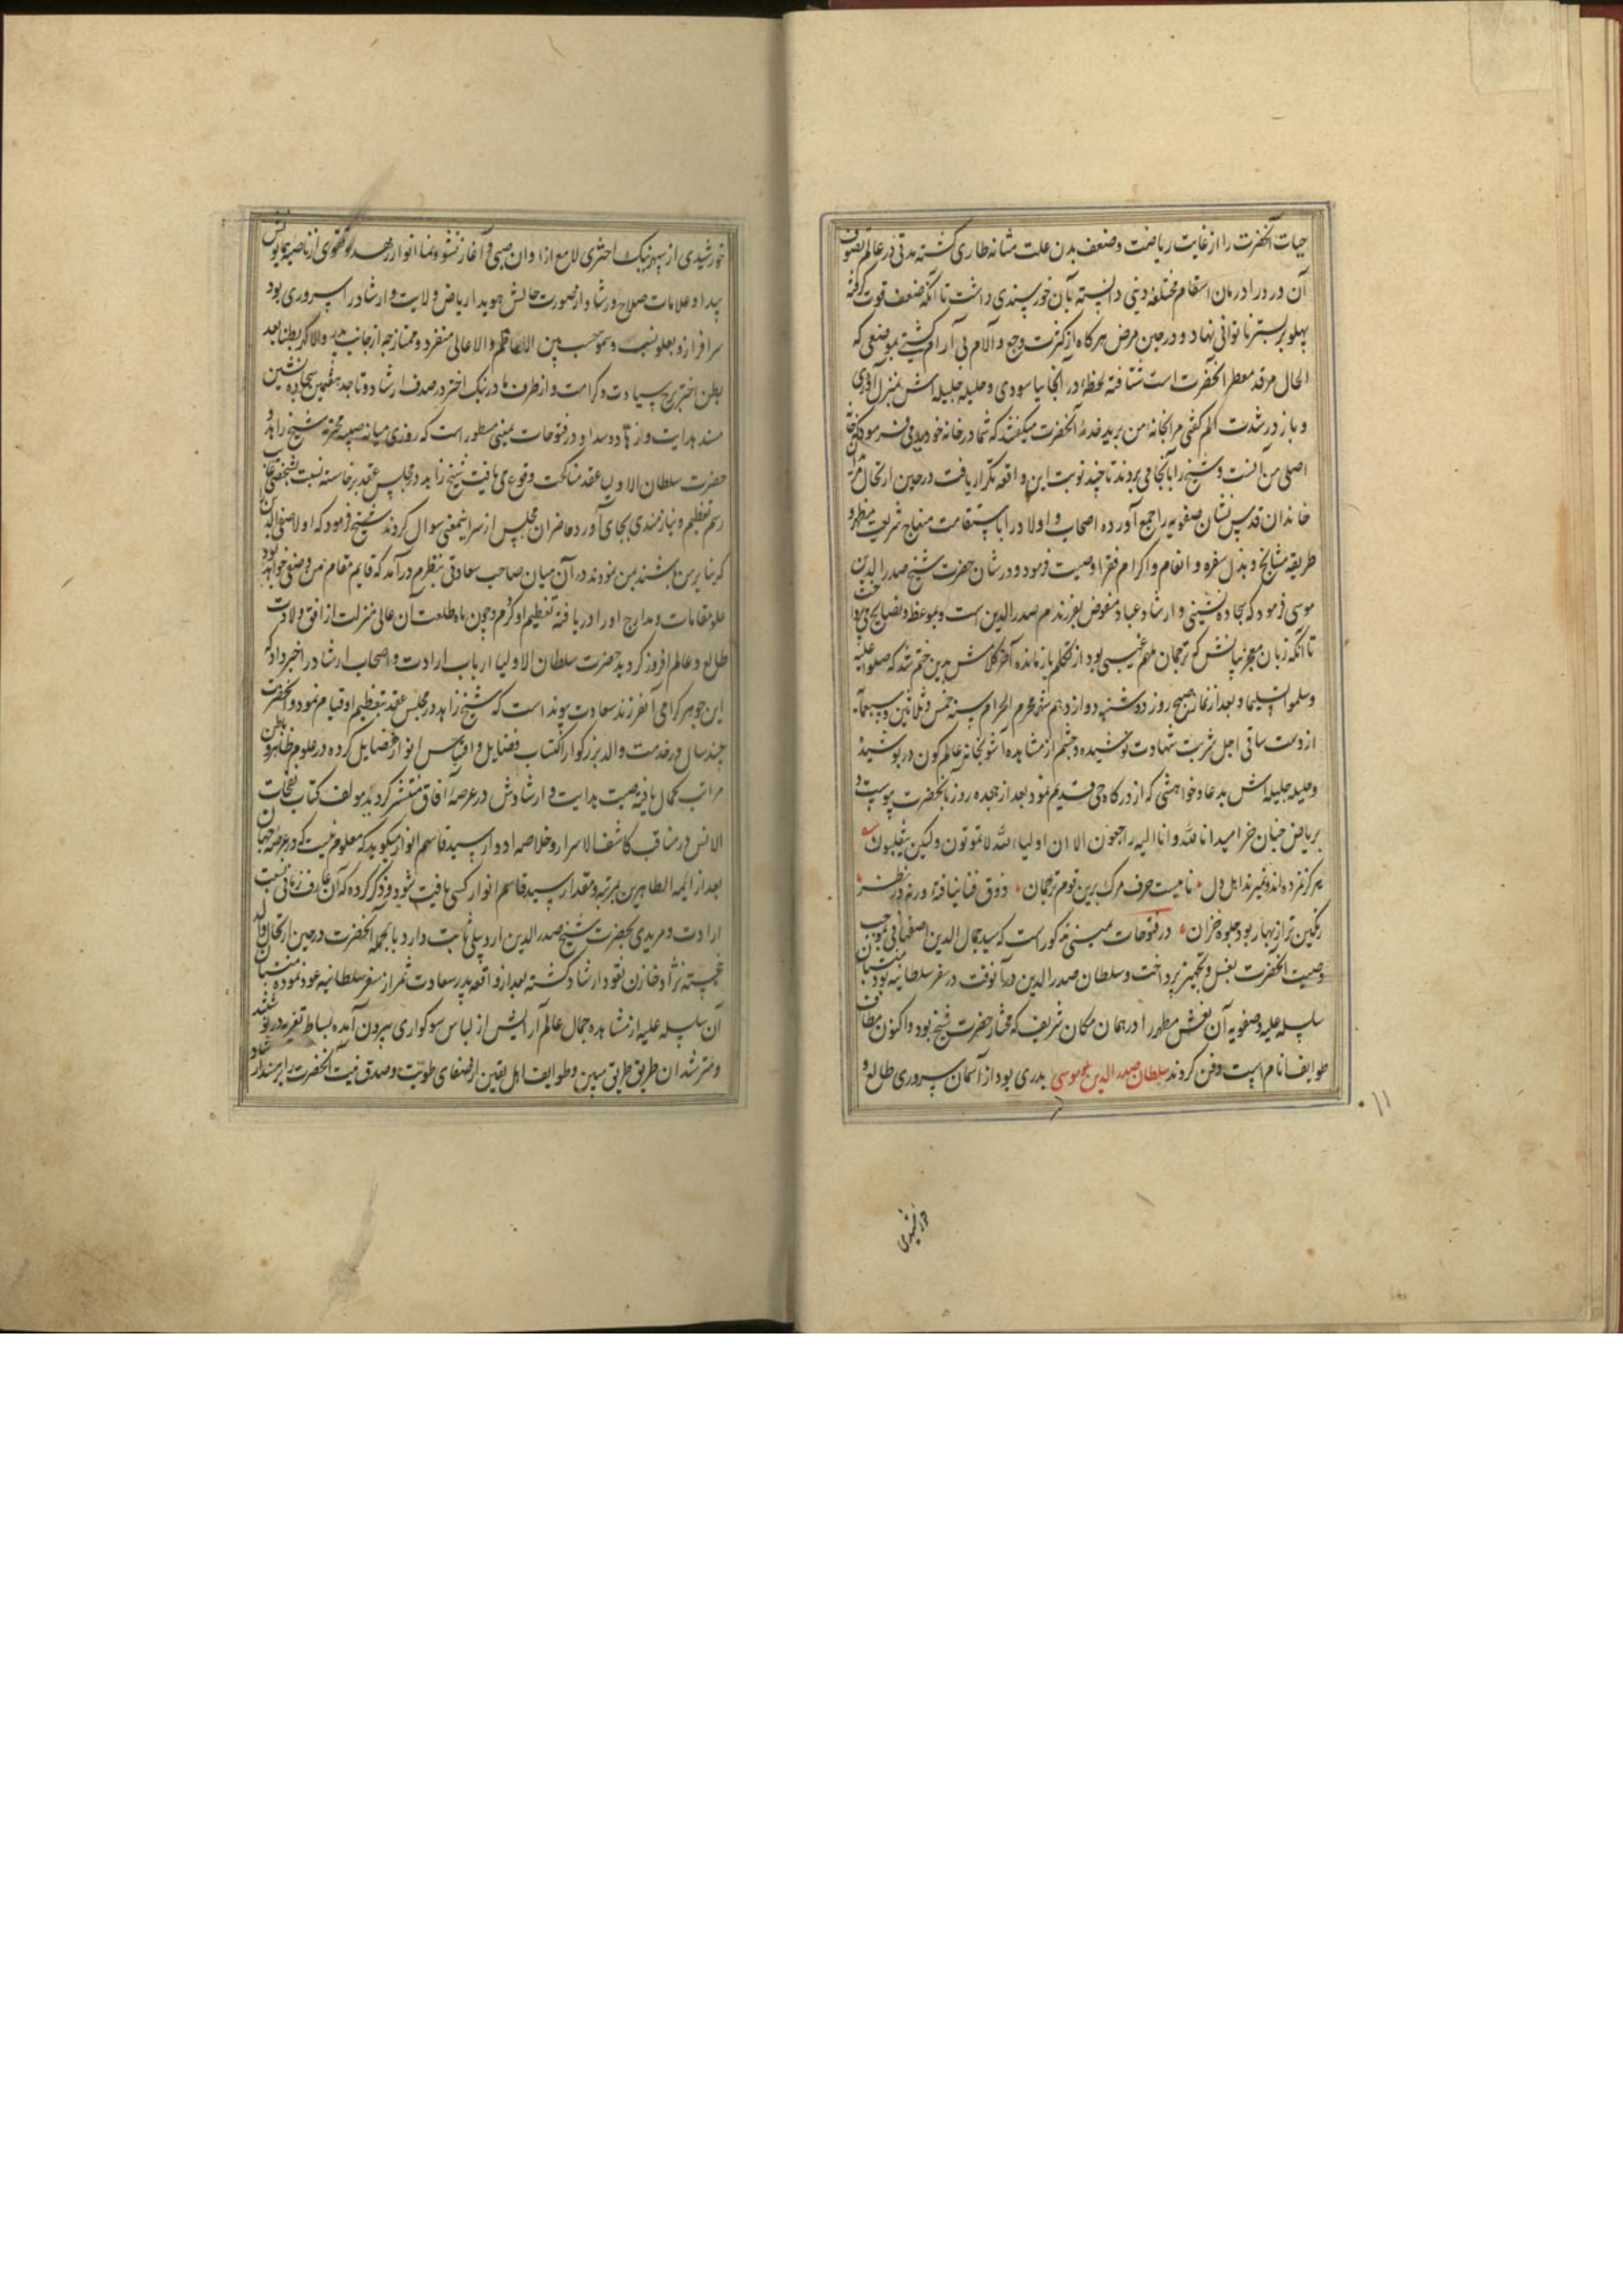 حیات آنحضرت را از غایت ریاضت و ضعف بدن علت مثانه طاری گشته مدتی در عالم تصوف
آن درد را درمان اسقام مختلفه دینی دانسته بآن خورسندی داشت تا آنکه ضعف قوت گرفته
پهلو بر بستر ناتوانی نهاد و در حین مرض هرگاه از کثرت وجع و آلام بی آرام گشتی بموضعی که
الحال مرقد معطر آنحضرت است شتافته لحظهٔ در آنجا بیاسودی و حلیله جلیله اش بمنزل آوردی
و باز در شدت الم گفتی مرا بخانه من برید خدمهٔ آنحضرت میگفتند که شما در خانه خودید می فرمود که خانه
اصلی من آنست و شیخ را بآنجا می بردند تا چند نوبت این واقعه تکرار یافت در حین ارتحال
خاندان قدس نشان صفویه را جمع آورده اصحاب و اولاد را باستقامت منهاج شریعت مطهر و
طریقه مشایخ و بذل سفره و انعام و اکرام فقرا وصیت فرمود و در شان حضرت شیخ صدرالدین
موسی فرمود که سجاده نشینی و ارشاد عباد مفوض بفرزندم صدرالدین است و بموعظ و نصایح می پرداخت
تا آنکه زبان معجز بیانش که ترجمان ملهم غیبی بود از تکلم باز مانده آخر کلامش بدین ختم شد که صلوا علیه
و سلموا تسلیما و بعد از نماز صبح روز دوشنبه دوازدهم شهر محرم الحرام سنه خمس و ثلاثین و سبعمآیه
از دست ساقی اجل شربت شهادت نوشیده و چشم از مشاهده آشوبخانه عالم کون در پوشیده
و حلیله جلیله اش بدعا و خواهشی که از درگاه حی قدیم نمود بعد از هجده روز بآنحضرت پیوست و
بریاض جنان خرامید انا لله و انا الیه راجعون الا ان اولیاء الله لا تموتون ولکن ینقلبون
هرگز نمرده اند و نمیرند اهل دل نامیست حرف مرگ برین قوم ترجمان ذوق فنا نیافته ورنه در نظر
رنگین تر از بهار بود جلوه خزان در فتوحات یمینی مذکور است که سید جمال الدین اصفهانی بموجب
وصیت آنحضرت بغسل و تجهیز پرداخت و سلطان صدرالدین در آنوقت در سفر سلطانیه بود منتسبان
سلسله علیه صفویه آن نعش مطهر را در همان مکان شریف که مختار حضرت شیخ بود و اکنون مطاف
طوایف انام است دفن کردند سلطان صدر الدین موسی بدری بود از آسمان سروری طالع و
۱۱
خورشیدی
خورشیدی از سپهر نیک اختری لامع از اوان صبی و آغاز نشو و نما انوار زهد و تقوی از ناصیه همایونش
پیدا و علامات صلاح و رشاد از صورت حالش هویدا ریاض ولایت و ارشاد را سروری بود
سرافراز و بعلو نسب و سمو حسب بین الاعاظم و الاعالی منفرد و ممتاز چه از جانب پدر والا گهر بطنا بعد
بطن اختر برج سیادت و کرامت و از طرف مادر نیک اختر در صدف ارشاد و تا جد هفتمین سجاده نشین
مسند هدایت و سداد و در فتوحات یمینی مسطور است که روزی میانه صبیه محترمه شیخ زاهد و
حضرت سلطان الاولیا عقد مناکحت وقوع می یافت شیخ زاهد در مجلس عقد برخاسته نسبت بشخصی غایب
رسم تعظیم و نیازمندی بجای آورد حاضران مجلس از سر اینمعنی سوال کردند شیخ فرمود که اولاد صفی الدین
که بنابرین باشند بمن نمودند در آن میان صاحب سعادتی بنظرم درآمد که قایم مقام من و صفی خواهد بود
علو مقامات و مدارج او را دریافته تعظیم او کردم و چون ماه طلعت آن عالی منزلت از افق ولادت
طالع و عالم افروز گردید حضرت سلطان الاولیا ارباب ارادت و اصحاب ارشاد را خبر داد که
این جوهر گرامی آنفرزند سعادت پیوند است که شیخ زاهد در مجلس عقد بتعظیم او قیام نمود و آنحضرت
چند سال در خدمت والد بزرگوار اکتساب فضایل و اقتباس انوار فضایل کرده در علوم ظاهر و باطن
مراتب کمال یافته صیت هدایت و ارشادش در عرصهٔ آفاق منتشر گردید مولف کتاب نفحات
الانس در مناقب کاشف الاسرار و خلاصه ادوار سید قاسم انوار میگوید که معلوم نیست که در عرصه جهان
بعد از ایمه الطاهرین بمرتبه و مقدار سید قاسم انوار کسی یافت شود و ذکر کرده که آن عارف ربانی نسبت
ارادت و مریدی بحضرت شیخ صدر الدین اردبیلی ثابت دارد بالجمله آنحضرت در حین ارتحال والد
خجسته نژاد خازن نقود ارشاد گشته بعد از واقعه پدر سعادت ثمر از سفر سلطانیه عود نموده منتسبان
آن سلسله علیه از مشاهده جمال عالم آرایش از لباس سوگواری بیرون آمده بساط تعزیه در نوشتند
و مسترشدان طریق مبین و طوایف اهل یقین از صفای طویت و صدق نیت آنحضرت را بر مسند ارشاد